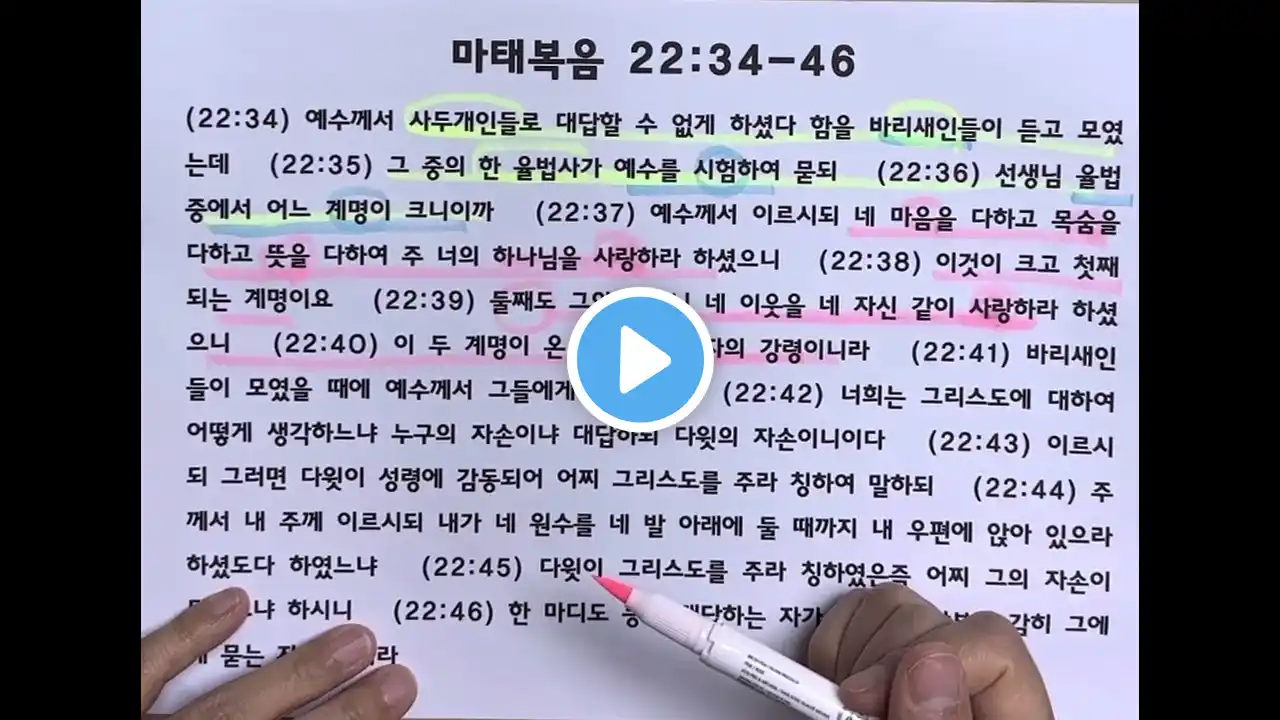 마태복음 22:34-46
(22:34) 예수께서 사두개인들로 대답할 수 없게 하셨다 함을 바리새인들이 듣고 모였
는데 (22:35) 그 중의 한 율법사가 예수를 시험하여 묻되 (22:36) 선생님 율법
중에서 어느 계명이 크니이까 (22:37) 예수께서 이르시되 네 마음을 다하고 목숨을
다하고 뜻을 다하여 주 너의 하나님을 사랑하라 하셨으니 (22:38) 이것이 크고 첫째
되는 계명이요 (22:39) 둘째도 네 이웃을 네 자신 같이 사랑하라 하셨
으니 (22:40) 이 두 계명이 온 강령이니라 (22:41) 바리새인
들이 모였을 때에 예수께서 그들에게 (22:42) 너희는 그리스도에 대하여
어떻게 생각하느냐 누구의 자손이냐 대답하되 다윗의 자손이니이다 (22:43) 이르시
되 그러면 다윗이 성령에 감동되어 어찌 그리스도를 주라 칭하여 말하되 (22:44) 주
께서 내 주께 이르시되 내가 네 원수를 네 발 아래에 둘 때까지 내 우편에 앉아 있으라
하셨도다 하였느냐 (22:45) 다윗이 그리스도를 주라 칭하였은즉 어찌 그의 자손이
하시니 (22:46) 한 마디도 대답하는 자가 감히 그에
묻는